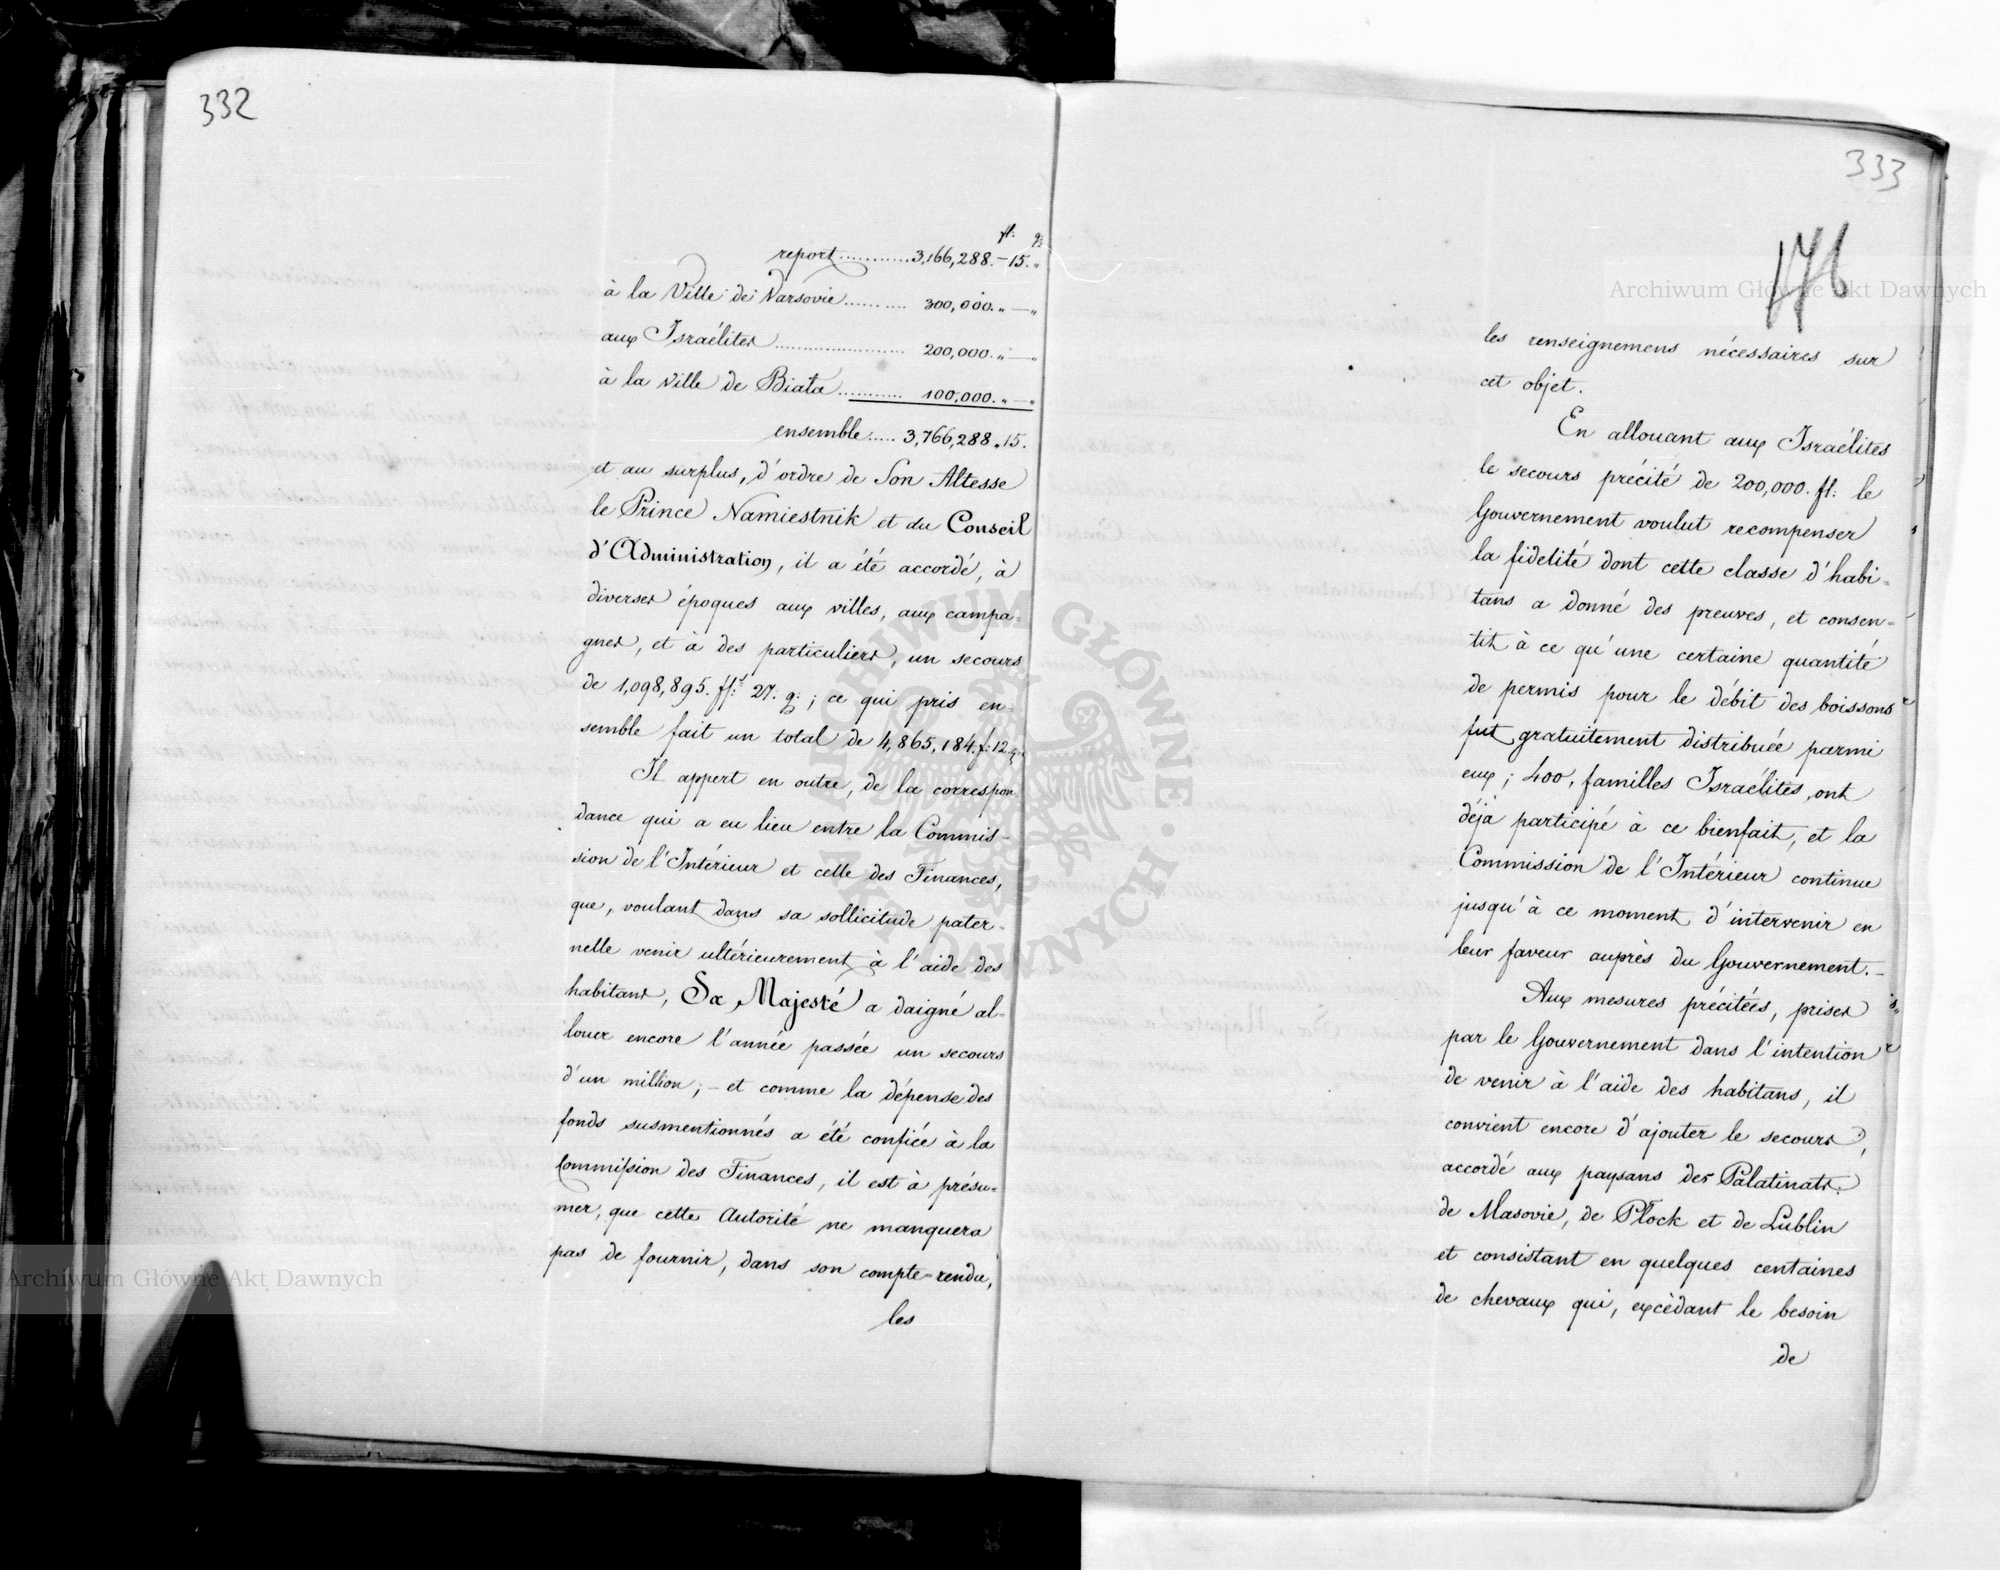 332
fl. g.
report ........... 3,166,288. – 15. "
à la Ville de Varsovie .......... 300,000. " — "
aux Israélites ...................... 200,000. " — "
à la ville de Biała ........... 100,000. " — "
ensemble ..... 3,766,288 " 15.
et au surplus, d'ordre de Son Altesse
le Prince Namiestnik et du Conseil
d'Administration, il a été accordé, à
diverses époques aux villes, aux campa=
gnes, et à des particuliers, un secours
de 1,098,895. fl. 27. g: ; ce qui pris en-
semble fait un total de 4,865,184. f: 12. g.
Il appert en outre, de la correspon-
dance qui a eu lieu entre la Commis-
sion de l'Intérieur et celle des Finances,
que, voulant dans sa sollicitude pater-
nelle venir ultérieurement à l'aide des
habitans, Sa Majesté a daigné al-
louer encore l'année passée un secours
d'un million; – et comme la dépense des
fonds susmentionnés a été confiée à la
Commission des Finances, il est à présu=
mer, que cette Autorité ne manquera
pas de fournir, dans son compte=rendu,
les
Archiwum Główne Akt Dawnych
ARCHIWUM GŁÓWNE · AKT DAWNYCH ·
333
176
Archiwum Główne Akt Dawnych
les renseignemens nécessaires sur
cet objet.
En allouant aux Israélites
le secours précité de 200,000. fl: le
Gouvernement voulut recompenser
la fidelité dont cette classe d'habi=
tans a donné des preuves, et consen=
tit à ce qu'une certaine quantité
de permis pour le débit des boissons
fut gratuitement distribuée parmi
eux; 400, familles Israélites, ont
déjà participé à ce bienfait, et la
Commission de l'Intérieur continue
jusqu'à ce moment d'intervenir en
leur faveur auprès du Gouvernement. –
Aux mesures précitées, prises
par le Gouvernement dans l'intention
de venir à l'aide des habitans, il
convient encore d'ajouter le secours,
accordé aux paysans des Palatinats:
de Masovie, de Plock et de Lublin
et consistant en quelques centaines
de chevaux qui, excèdant le besoin
de